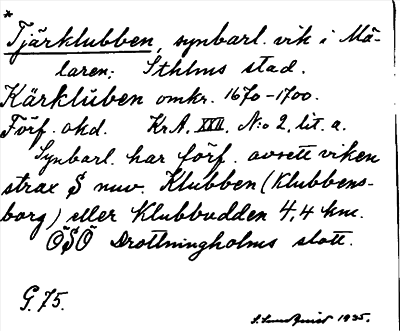 *
Tjärklubben, synbarl. vik i Mä-
laren; Sthlms stad.
Kärkluben omkr. 1670-1700.
Förf. okd. Kr.A. XXII. N:o 2, lit. a.
Synbarl. har förf. avsett viken
strax S nuv. Klubben (Klubbens-
borg) eller Klubbudden 4,4 km.
ÖSÖ Drottningholms slott.
G. 75.
S. Lundquist 1935.